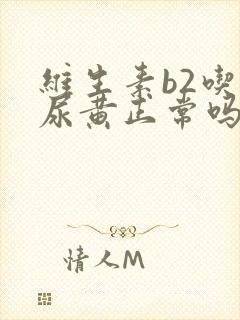 維生素b2喫
尿黃正常吗
情人M